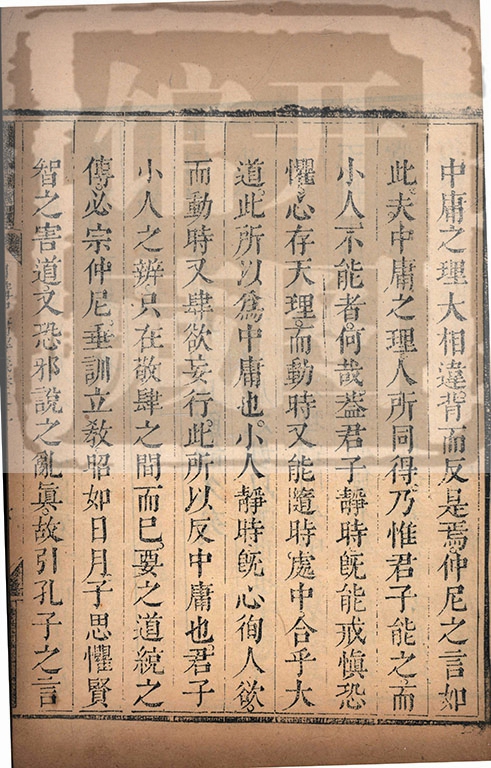 中庸之理大相違背而反是焉。仲尼之言如
此。夫中庸之理人所同得乃惟君子能之而
小人不能者。何哉。蓋君子靜時旣能戒愼恐
懼心存天理。而動時又能隨時處中合乎大
道。此所以爲中庸也。小人靜時旣心徇人欲。
而動時又肆欲妄行。此所以反中庸也。君子
小人之辨只在敬肆之間而已。要之道統之
傳必宗仲尼。垂訓立教昭如日月子思懼賢
智之害道。又恐邪說之亂眞。故引孔子之言